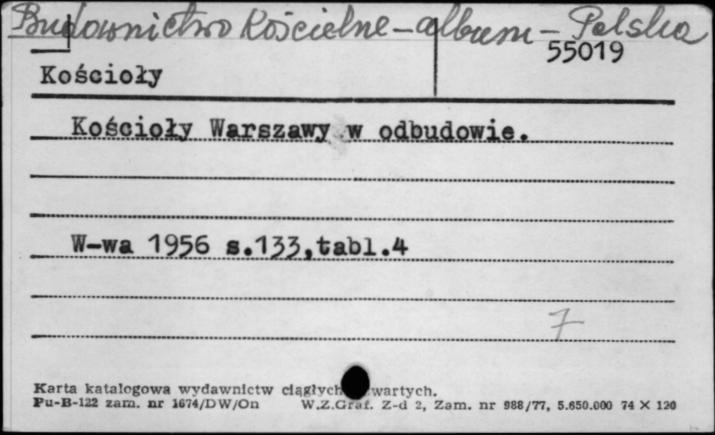 Budownictwo Kościelne - album - Polska
55019
Kościoły
Kościoły Warszawy w odbudowie.
W-wa 1956 s.133,tabl.4
7
Karta katalogowa wydawnictw ciągłych wartych.
Pu-B-122 zam. nr 1674/DW/On W.Z.Graf. Z-d 2, Zam. nr 988/77, 5.650.000 74 X 120